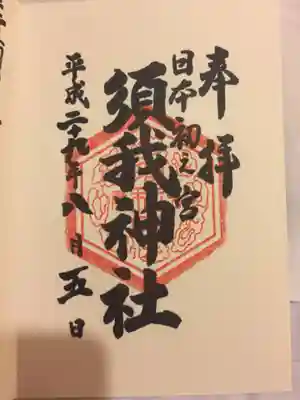 奉拝
日本初之宮
須我神社
平成二十九年八月五日